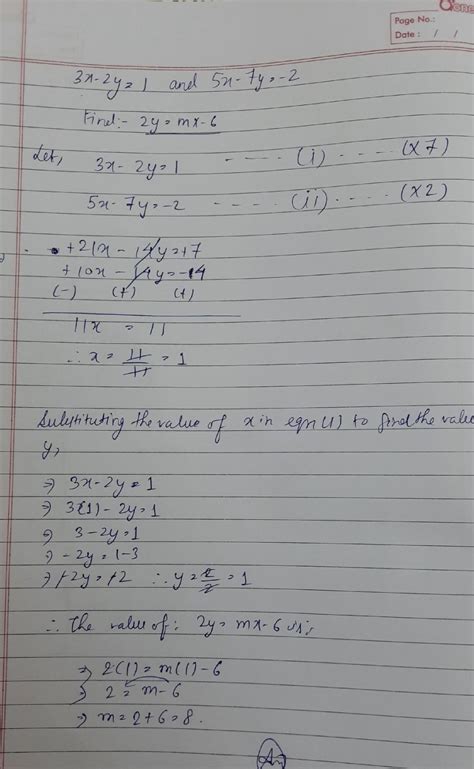 Page No.:
Date: / /
3x-2y=1 and 5x-7y=-2
Find:- 2y=mx-6
Let, 3x-2y=1 ---- (i) .... (x7)
5x-7y=-2 ---- (ii) .... (x2)
+21x-14y=+7
+10x-14y=-14
(-) (+) (+)
11x = 11
∴ x = 11/11 = 1
Substituting the value of x in eqn(1) to find the value
y,
⇒ 3x-2y=1
⇒ 3(1)-2y=1
⇒ 3-2y=1
⇒ -2y=1-3
⇒ +2y=+2 ∴ y=2/2=1
∴ The value of: 2y=mx-6 is:
⇒ 2(1)=m(1)-6
⇒ 2=m-6
⇒ m=2+6=8.